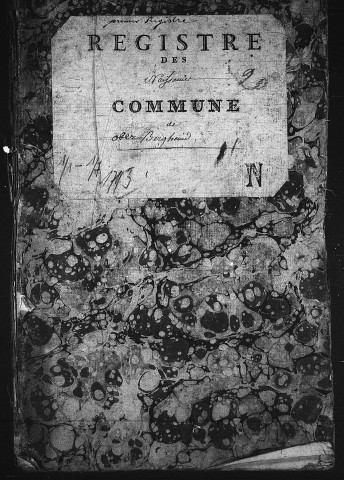 premier Registre
REGISTRE
DES
Naissances
20
COMMUNE
de
Ober Bergheim
11
1793
N